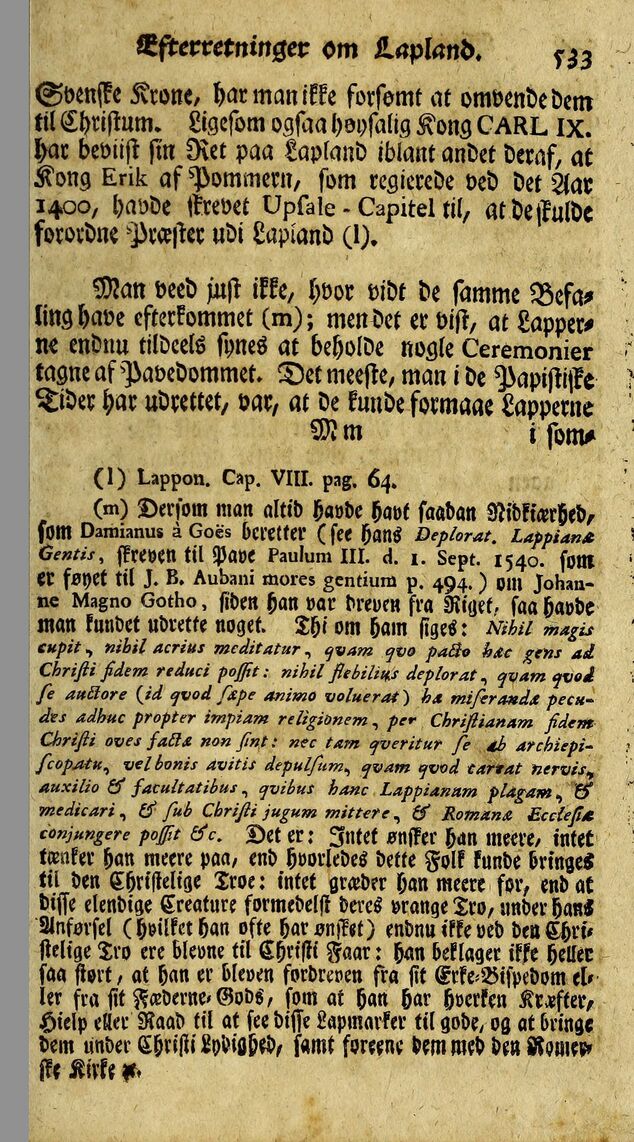 Efterretninger om Lapland. 533
Svenske Krone, har man ikke forsømt at omvende dem
til Christum. Ligesom ogsaa høysalig Kong CARL IX.
har beviist sin Ret paa Lapland iblant andet deraf, at
Kong Erik af Pommern, som regierede ved det Aar
1400, havde skrevet Upsale-Capitel til, at de skulde
forordne Præster udi Lapland (l).
Man veed just ikke, hvor vidt de samme Befa-
ling have efterkommet (m); men det er vist, at Lapper-
ne endnu tildeels synes at beholde nogle Ceremonier
tagne af Pavedommet. Det meeste, man i de Papistiske
Tider har udrettet, var, at de kunde formaae Lapperne
Mm i som-
(l) Lappon. Cap. VIII. pag. 64.
(m) Dersom man altid havde havt saadan Nidkiærhed,
som Damianus à Goës beretter (see hans Deplorat. Lappianæ
Gentis, skreven til Pave Paulum III. d. 1. Sept. 1540. som
er føyet til J. B. Aubani mores gentium p. 494.) om Johan-
ne Magno Gotho, siden han var dreven fra Riget, saa havde
man kundet udrette noget. Thi om ham siges: Nihil magis
cupit, nihil acrius meditatur, qvam qvo pacto hæc gens ad
Christi fidem reduci possit: nihil flebilius deplorat, qvam qvod
se auctore (id qvod sæpe animo voluerat) hæ miserandæ pecu-
des adhuc propter impiam religionem, per Christianam fidem
Christi oves factæ non sint: nec tam qveritur se ab archiepi-
scopatu, vel bonis avitis depulsum, qvam qvod careat nervis,
auxilio & facultatibus, qvibus hanc Lappianam plagam, &
medicari, & sub Christi jugum mittere, & Romanæ Ecclesiæ
conjungere possit &c. Det er: Intet ønsker han meere, intet
tænker han meere paa, end hvorledes dette Folk kunde bringes
til den Christelige Troe: intet græder han meere for, end at
disse elendige Creature formedelst deres vrange Tro, under hans
Anførsel (hvilket han ofte har ønsket) endnu ikke ved den Chri-
stelige Tro ere blevne til Christi Faar: han beklager ikke heller
saa stort, at han er bleven fordreven fra sit Erke-Bispedom el-
ler fra sit Fæderne-Gods, som at han har hverken Kræfter,
Hielp eller Raad til at see disse Lapmarker til gode, og at bringe
dem under Christi Lydighed, samt foreene dem med den Romer-
ske Kirke